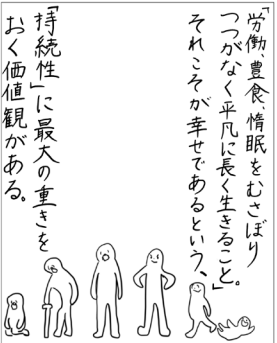 「労働、豊食、惰眠をむさぼり
つつがなく平凡に長く生きること。
それこそが幸せであるという、」
「持続性」に最大の重きを
おく価値観がある。